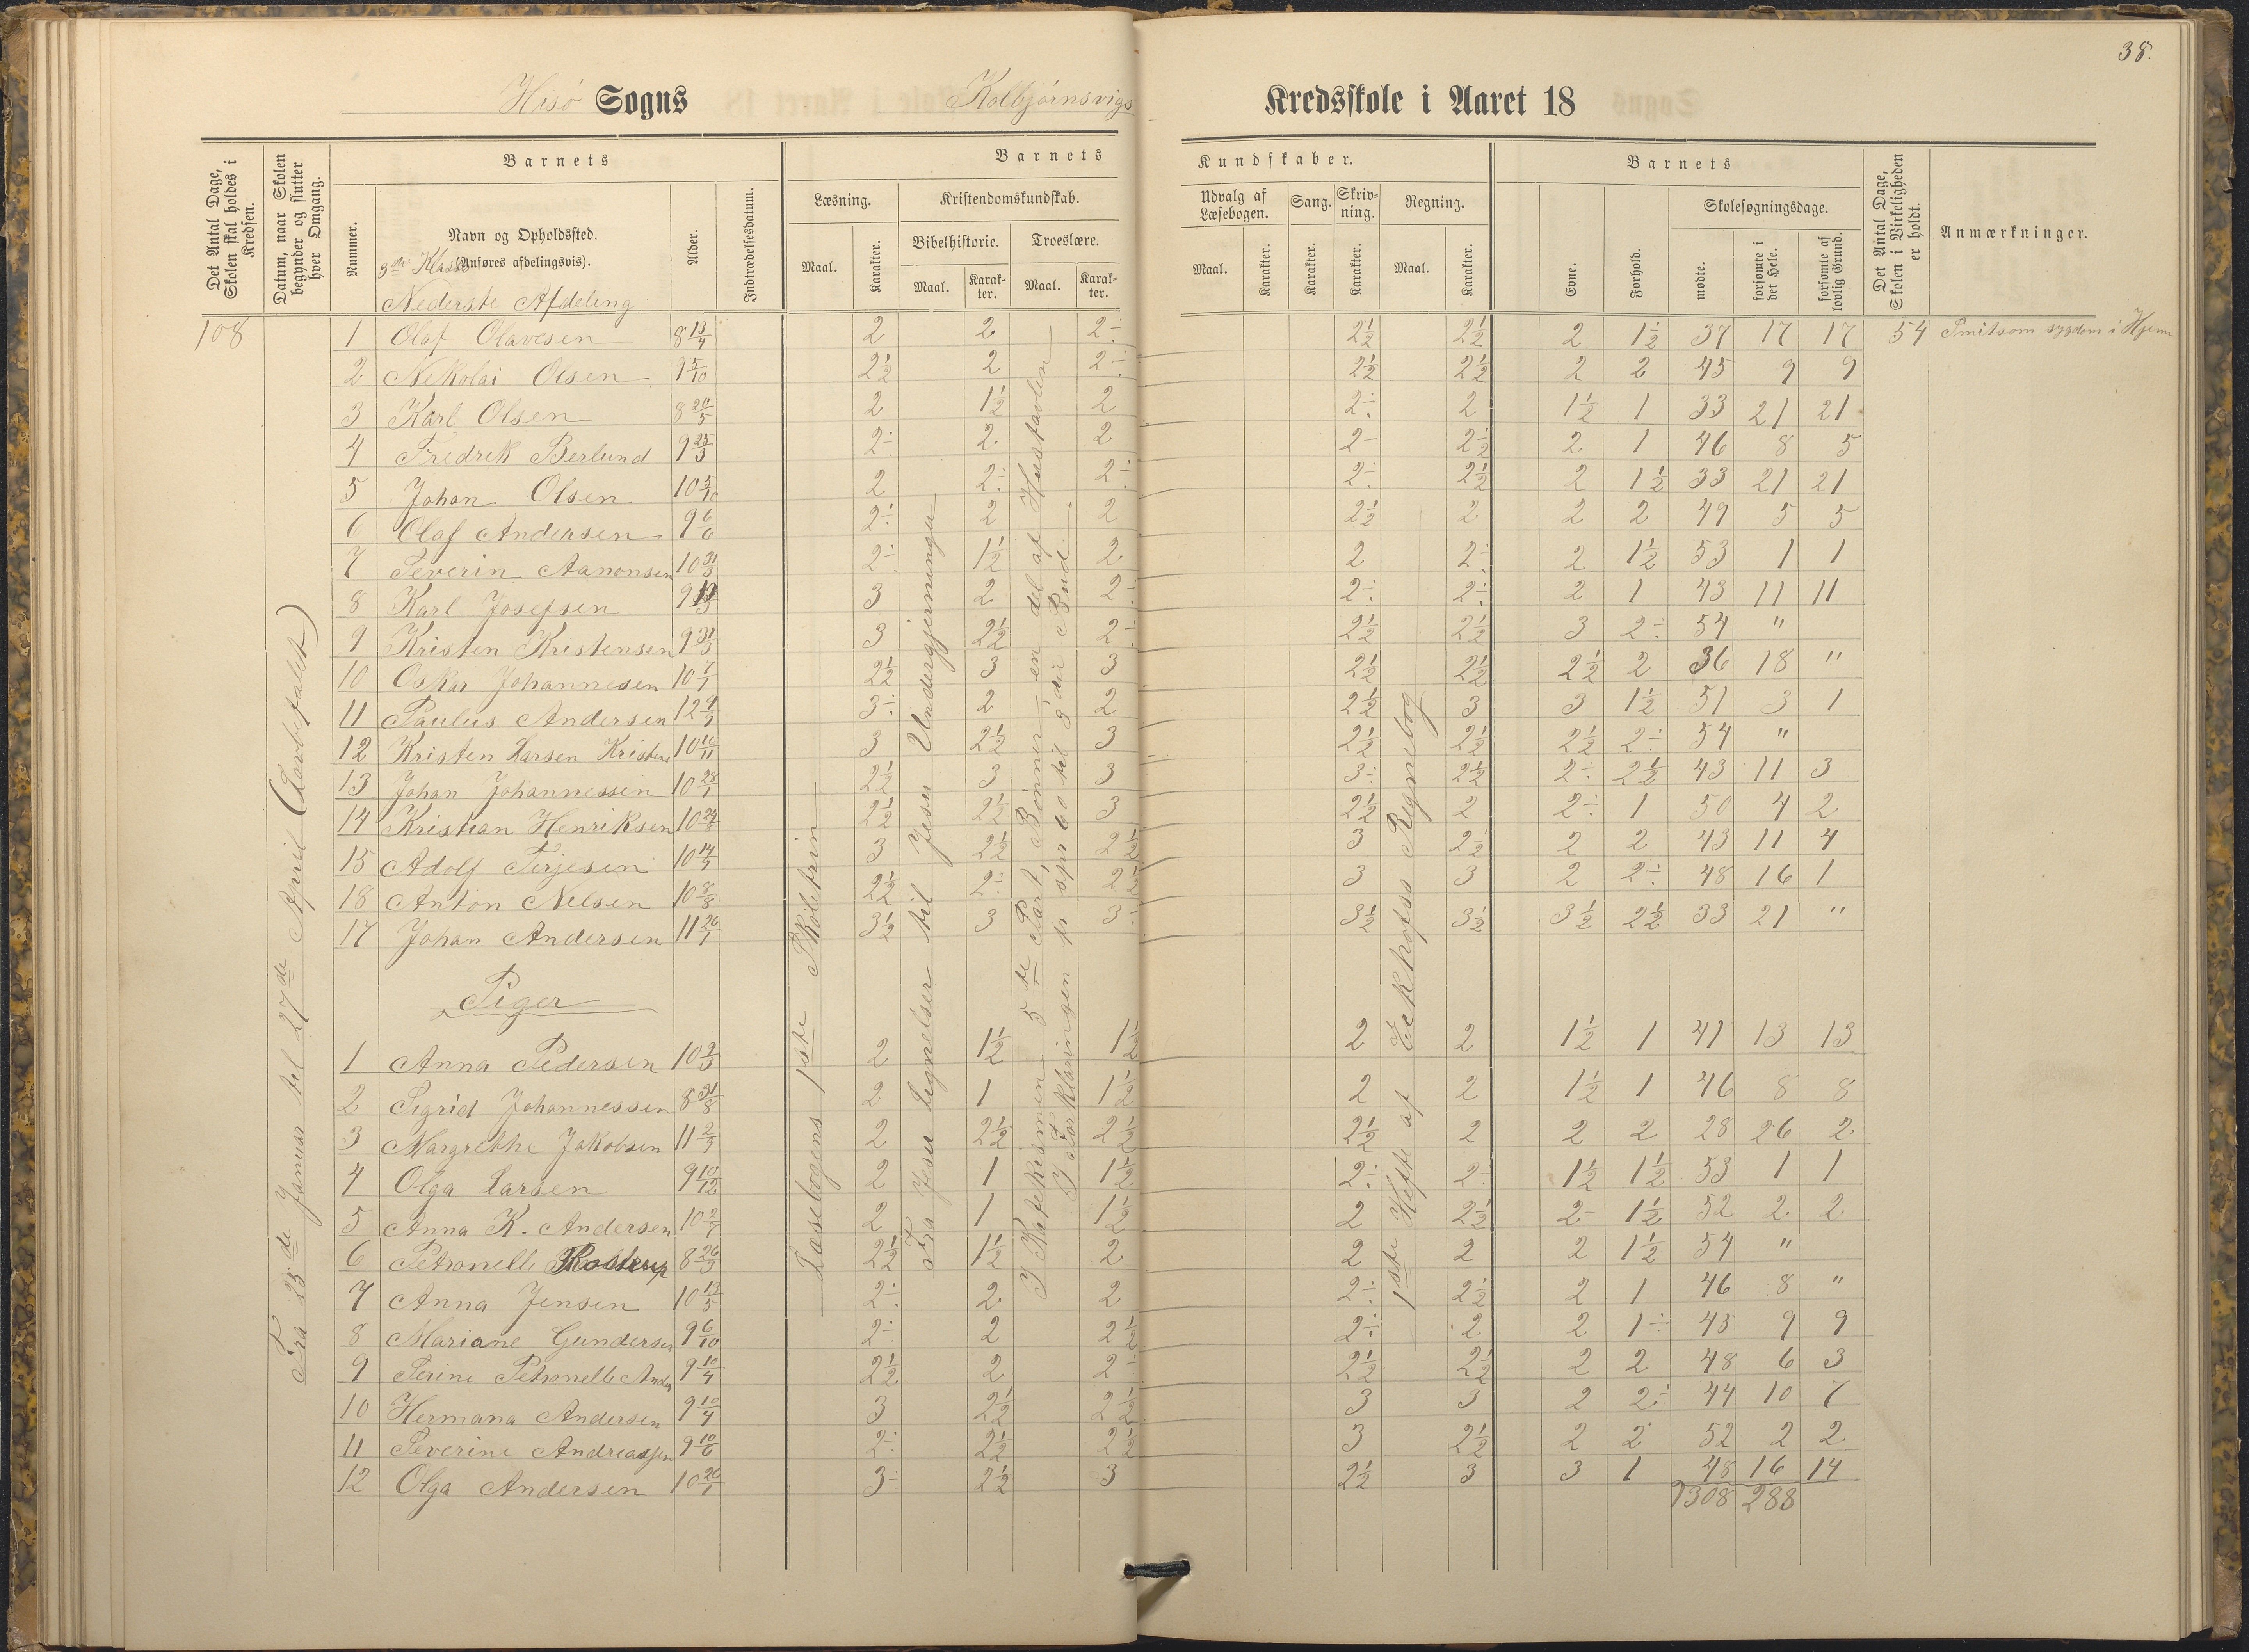 38.
Hisö Sogns Kolbjörnsvigs Kredsskole i Aaret 18
Det Antal Dage, Skolen skal holdes i Kredsen.
Datum, naar Skolen begynder og slutter hver Omgang.
Barnets
Nummer.
Navn og Opholdssted.
(Anføres afdelingsvis).
3die Klasse
Nederste Afdeling
Alder.
Indtrædelsesdatum.
Barnets Kundskaber.
Læsning.
Maal.
Karakter.
Kristendomskundskab.
Bibelhistorie.
Maal.
Karakter.
Troeslære.
Maal.
Karakter.
Udvalg af Læsebogen.
Maal.
Karakter.
Sang.
Karakter.
Skrivning.
Karakter.
Regning.
Maal.
Karakter.
Barnets
Evne.
Forhold.
Skolesøgningsdage.
mødte.
forsømte i det Hele.
forsømte af lovlig Grund.
Det Antal Dage, Skolen i Virkeligheden er holdt.
Anmærkninger.
108 1 Olaf Olavesen 8 13/4 2 2 2÷ 2½ 2½ 2 1½ 37 17 17 54 Smitsom sygdom i Hjem
2 Nekolai Olsen 9 5/10 2½ 2 2÷ 2½ 2½ 2 2 45 9 9
3 Karl Olsen 8 20/5 2 1½ 2 2÷ 2 1½ 1 33 21 21
4 Fredrek Berlund 9 25/3 2÷ 2 2 2- 2½ 2 1 46 8 5
5 Johan Olsen 10 5/10 2 2÷ 2÷ 2÷ 2½ 2 1½ 33 21 21
6 Olaf Andersen 9 6/6 2÷ 2 2 2½ 2 2 2 49 5 5
7 Severin Aanonsen 10 31/3 2÷ 1½ 2 2 2÷ 2 1½ 53 1 1
8 Karl Josefsen 9 3 2 2÷ 2÷ 2÷ 2 1 43 11 11
9 Kristen Kristensen 9 31/3 3 2½ 2÷ 2½ 2½ 3 2÷ 54 "
10 Oskar Johannesen 10 7/1 2½ 3 3 2½ 2½ 2½ 2 36 18 "
11 Paulus Andersen 12 3÷ 2 2 2½ 3 3 1½ 51 3 1
12 Kristen Larsen Kristens 10 10/11 3 2½ 3 2½ 2½ 2½ 2÷ 54 "
13 Johan Johannessen 10 28/1 2½ 3 3 3÷ 2½ 2÷ 2½ 43 11 3
14 Kristian Henriksen 10 24/8 2½ 2½ 3 2½ 2 2÷ 1 50 4 2
15 Adolf Terjesen 10 3 2½ 2½ 3 2½ 2 2 43 11 4
18 Anton Nelsen 10 8/8 2½ 2÷ 2½ 3 3 2 2÷ 48 16 1
17 Johan Andersen 11 26/1 3½ 3 3÷ 3½ 3½ 3½ 2½ 33 21 "
Piger
1 Anna Pedersen 10 2 1½ 1½ 2 2 1½ 1 41 13 13
2 Sigrid Johannessen 8 31/8 2 1 1½ 2 2 1½ 1 46 8 8
3 Margrethe Jakobsen 11 2 2½ 2½ 2½ 2 2 2 28 26 2
4 Olga Larsen 9 10/12 2 1 1½ 2÷ 2÷ 1½ 1½ 53 1 1
5 Anna K. Andersen 10 2 1 1½ 2 2½ 2- 1½ 52 2 2
6 Petronelle 8 26/3 2½ 1½ 2 2 2 2 1½ 54 "
7 Anna Jensen 10 13/5 2÷ 2 2 2÷ 2½ 2 1 46 8 "
8 Mariane Gundersen 9 6/10 2÷ 2 2½ 2÷ 2 2 1÷ 43 9 9
9 Serine Petronelle Ander 9 10/4 2½ 2 2÷ 2½ 2½ 2 2 48 6 3
10 Hermana Andersen 9 10/4 3 2½ 2½ 3 3 2 2÷ 44 10 7
11 Severine Andreassen 9 10/6 2÷ 2½ 2½ 3 2½ 2 2 52 2 2
12 Olga Andersen 10 26/1 3÷ 2½ 3 2½ 3 3 1 48 16 14
1308 288
Fra 25de Januar til 27de April (Lovbefalet)
Læsebogens 1ste Skoletrin
Fra Jesu Lignelser til Jesu Undergjerninger
I Katekismen 5te Part, Bønner - en del af Hustavlen
I Forklaringen fr spm 60 til 8de Bud.
1ste Hefte af Eekhofss Regnebog